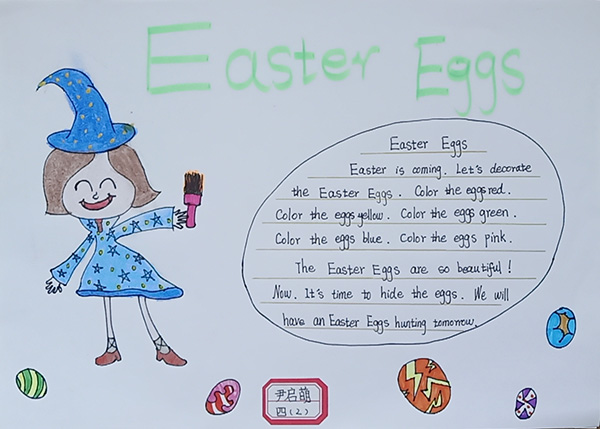 Easter Eggs
Easter Eggs
Easter is coming. Let's decorate
the Easter Eggs. Color the eggs red.
Color the eggs yellow. Color the eggs green.
Color the eggs blue. Color the eggs pink.
The Easter Eggs are so beautiful!
Now. It's time to hide the eggs. We will
have an Easter Eggs hunting tomorrow.
尹启萌
四(2)